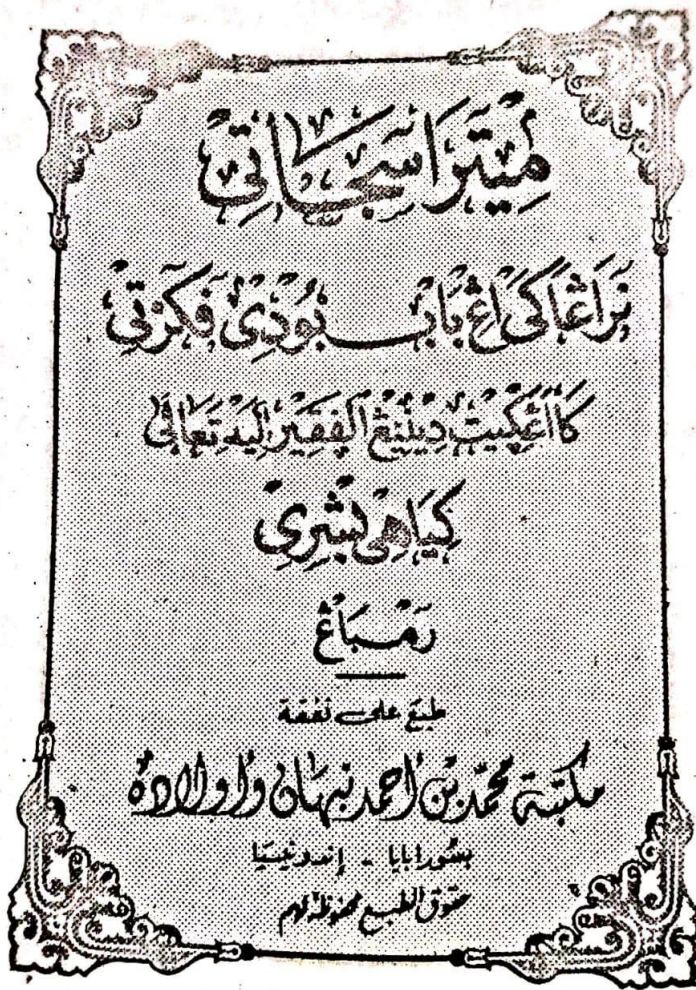 مِيْتَرَا سَجَاتِيْ
نَرَاڠَاكَيْ اِڠ بَابْ بُوْدِيْ فَكَرْتِيْ
كَا أَڠْكِيْتْ دَيْنِيْڠْ اَلْفَقِيْرْ اِلَيْهِ تَعَالَى
كِيَاهِيْ بِشْرِيْ
رَمْبَاڠْ
طبع على نفقة
مكتبة محمد بن أحمد نبهان وأولاده
بسورابايا - إندونيسيا
حقوق الطبع محفوظة لهم